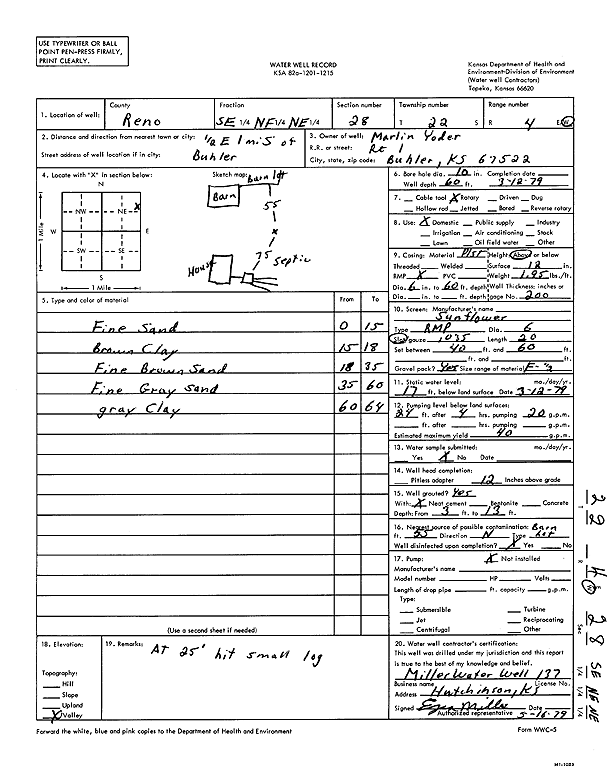 USE TYPEWRITER OR BALL
POINT PEN-PRESS FIRMLY,
PRINT CLEARLY.
WATER WELL RECORD
KSA 82a-1201-1215
Kansas Department of Health and
Environment-Division of Environment
(Water well Contractors)
Topeka, Kansas 66620
1. Location of well:
County
Reno
Fraction
SE 1/4 NE 1/4 NE 1/4
Section number
28
Township number
T 22 S
Range number
R 4 E/W
2. Distance and direction from nearest town or city: 1/2 E 1 mi S of
Street address of well location if in city: Buhler
3. Owner of well: Marlin Yoder
R.R. or street: Rt 1
City, state, zip code: Buhler, KS 67522
4. Locate with "X" in section below:
Sketch map:
N
NW NE X
W E
SW SE
S
1 Mile
1 Mile
Barn lot
Barn
55
x
75 Septic
House
6. Bore hole dia. 10 in. Completion date
Well depth 60 ft. 3-12-79
7. Cable tool X Rotary Driven Dug
Hollow rod Jetted Bored Reverse rotary
8. Use: X Domestic Public supply Industry
Irrigation Air conditioning Stock
Lawn Oil field water Other
9. Casing: Material Plst Height: Above or below
Threaded Welded Surface 12 in.
RMP X PVC Weight 1.95 lbs./ft.
Dia. 6 in. to 60 ft. depth Wall Thickness: inches or
Dia. in. to ft. depth gage No. 200
10. Screen: Manufacturer's name
Sunflower
Type RMP Dia. 6
Slot/gauze 1035 Length 20
Set between 40 ft. and 60 ft.
ft. and ft.
Gravel pack? Yes Size range of material
11. Static water level: mo./day/yr.
17 ft. below land surface Date 3-12-79
12. Pumping level below land surfaces:
24 ft. after 4 hrs. pumping 20 g.p.m.
ft. after hrs. pumping g.p.m.
Estimated maximum yield 40 g.p.m.
13. Water sample submitted: mo./day/yr.
Yes X No Date
14. Well head completion:
Pitless adapter 12 Inches above grade
15. Well grouted? Yes
With: X Neat cement Bentonite Concrete
Depth: From 3 ft. to 13 ft.
16. Nearest source of possible contamination: Barn
ft. 55 Direction N Type Lot
Well disinfected upon completion? X Yes No
17. Pump: X Not installed
Manufacturer's name
Model number HP Volts
Length of drop pipe ft. capacity g.p.m.
Type:
Submersible Turbine
Jet Reciprocating
Centrifugal Other
5. Type and color of material From To
Fine Sand 0 15
Brown Clay 15 18
Fine Brown Sand 18 35
Fine Gray Sand 35 60
gray Clay 60 64
(Use a second sheet if needed)
18. Elevation:
Topography:
Hill
Slope
Upland
X Valley
19. Remarks: At 25' hit small log
20. Water well contractor's certification:
This well was drilled under my jurisdiction and this report
is true to the best of my knowledge and belief.
Miller Water Well 137
Business name License No.
Address Hutchinson, KS
Signed Date 5-16-79
Authorized representative
Forward the white, blue and pink copies to the Department of Health and Environment
Form WWC-5
T 22
R 4 W
Sec 28
SE 1/4 NE 1/4 NE 1/4